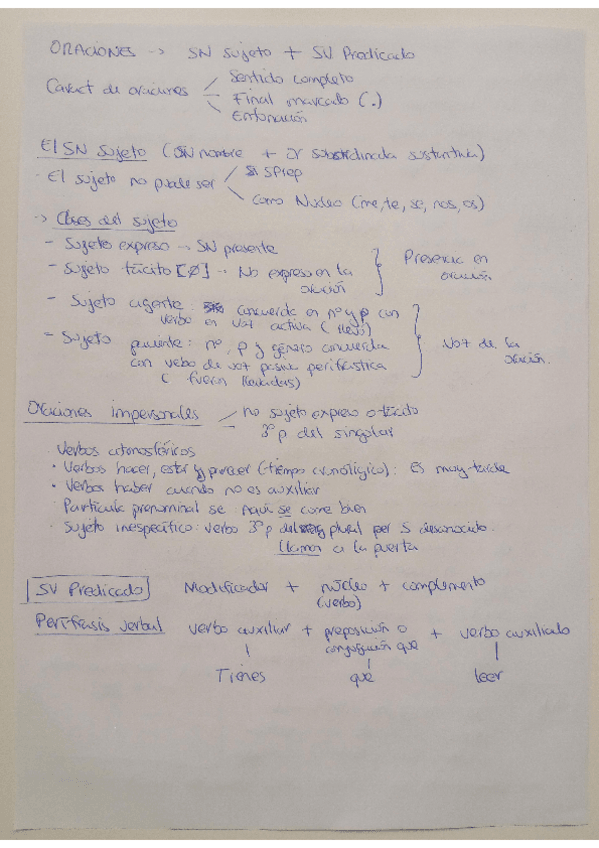 ORACIONES -> SN sujeto + SV Predicado
Caract de oraciones
Sentido completo
Final marcado (.)
Entonación
El SN sujeto (SN nombre + Or subordinada sustantiva)
· El sujeto no puede ser
SPrep
Como Nucleo (me, te, se, nos, os)
-> Clases del sujeto
- Sujeto expreso -> SN presente
- Sujeto tácito [Ø] -- No expreso en la
oración
Presencia en
oración
- Sujeto agente: concuerda en nº y p con
verbo en voz activa (llevó)
- Sujeto paciente: nº, p y género concuerda
con verbo de voz pasiva perifrástica
( fueron llevadas)
Voz de la
oración.
Oraciones impersonales
no sujeto expreso o tácito
3ª p del singular
· Verbos atmosféricos
· Verbos hacer, estar y parecer (tiempo cronológico): Es muy tarde
· Verbos haber cuando no es auxiliar
· Partícula pronominal se Aquí se come bien
· Sujeto inespecífico: verbo 3ª p del plural per S desconocido.
Llaman a la puerta
SV Predicado Modificador + núcleo + complemento
(verbo)
Perífrasis verbal verbo auxiliar + preposición o + verbo auxiliado
conjunción que
Tienes que leer